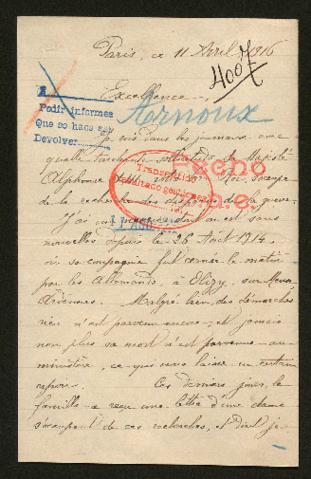 Paris, ce 11 Avril 1916
4007
Excellence,
Arnoux
Pedir informes
Que se haga
Devolver
Je vois dans les journaux avec
quelle sa Majesté
Alphonse s'occupe
de la recherche des disparus de la guerre
Transmitido
echo
J'ai un qui est sans
nouvelles depuis le 26 Août 1914.
où sa compagnie fut cernée le matin
par les Allemands, à Olizy, sur Meuse
Ardennes. Malgré bien des démarches
rien n'est parvenu encore, et jamais
non plus sa mort n'est parvenue au
ministère, ce qui nous laisse un certain
espoir. Ces derniers jours, la
famille a reçu une lettre d'une dame
s'occupant de ces recherches, et dont je